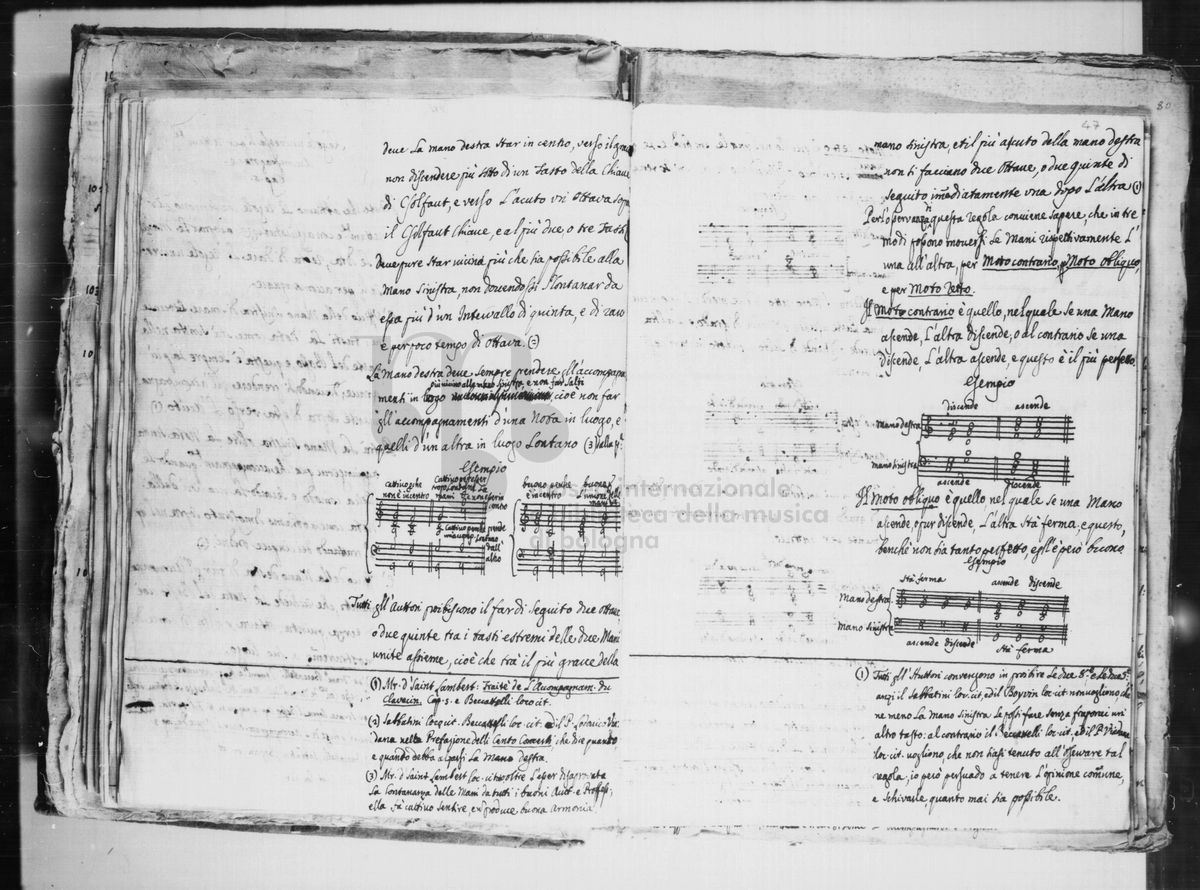 deve La mano destra star in centro, verso il grave
non discendere più sotto di un Tasto della Chiave
di Gsolfaut, e verso L'acuto un Ottava sopra
il Gsolfaut Chiave, e al più due, o tre Tasti
deve pure star vicina più che sia possibile alla
Mano sinistra, non dovendosi slontanar da
essa più d'un Intervallo di quinta, e di raro
e per poco tempo di Ottava. (2)
La mano destra deve sempre prendere gl'accompagna
più vicino alla mano sinistra, e non far salti
menti in luogo cioè non far
gl'accompagnamenti d'una Nota in luogo, e
quelli d'un altra in luogo Lontano (3)
Esempio
cattivo perche
non è in centro
buono perche
è in centro
Tutti gl'Auttori proibiscono il far di seguito due Ottave
o due quinte tra i tasti estremi delle due Mani
unite assieme, cioè che trà il più grave della
(1) Mr. d'Saint Lambert: Traitè de L'Acompagnam. du
Clavecin. Cap. 5. e Beccatelli loco cit.
(2) Sabbatini Loc. cit. Beccatelli loc. cit. ed il P. Lodovico Via
dana nella Prefazione delli Cento Concerti, che dice quanto
e quando debba alzarsi La Mano destra.
(3) Mr. d'Saint Lambert loc. cit. inoltre L'esser disaprovata
La lontananza delle Mani da tutti i buoni Autt. e Profess.
ella fà cattivo sentire, e produce buona Armonia
80
47
mano sinistra, et il più accuto della mano destra
non si facciano due Ottave, o due quinte di
seguito immediatamente una dopo L'altra (1)
Per osservanza di questa regola conviene sapere, che in tre
modi possono moversi Le Mani rispettivamente L'
una all'altra, per Moto contrario, Moto obliquo,
e per Moto Retto.
Il Moto contrario è quello, nel quale se una Mano
ascende, L'altra discende, o al contrario se una
discende, L'altra ascende, e questo è il più perfetto.
Esempio
discende ascende
Mano destra
Mano sinistra
ascende discende
Il Moto obliquo è quello nel quale se una Mano
ascende, o pur discende, L'altra stà ferma; e questo,
benche non sia tanto perfetto, egl'è però buono
Esempio
stà ferma ascende discende
Mano destra
Mano sinistra
ascende discende stà ferma
(1) Tutti gl'Auttori convengono in proibire Le due 8.e e Le due 5.e
anzi il Sabbatini loc. cit. ed il Boyvin loc. cit. non vogliono che
ne meno La mano sinistra Le possi fare senza fraporci un
altro tasto: al contrario il Beccatelli loc. cit. ed il P. Viadana
loc. cit. vogliono, che non siasi tenuto all'osservare tal
regola, io però persuado a tenere L'opinione comune,
e schivarle quanto mai sia possibile.
museo internazionale
e biblioteca della musica
di bologna